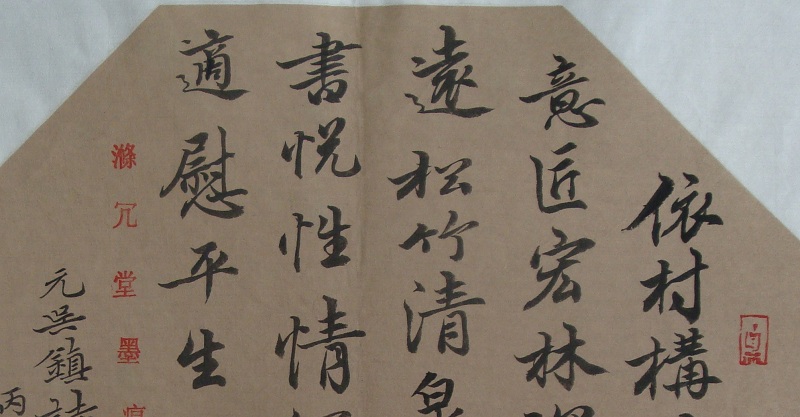 依村構
意匠宏林
遠松竹清泉
書悦性情
適慰平生
滌冗堂墨痕
元吳鎮詩
丙